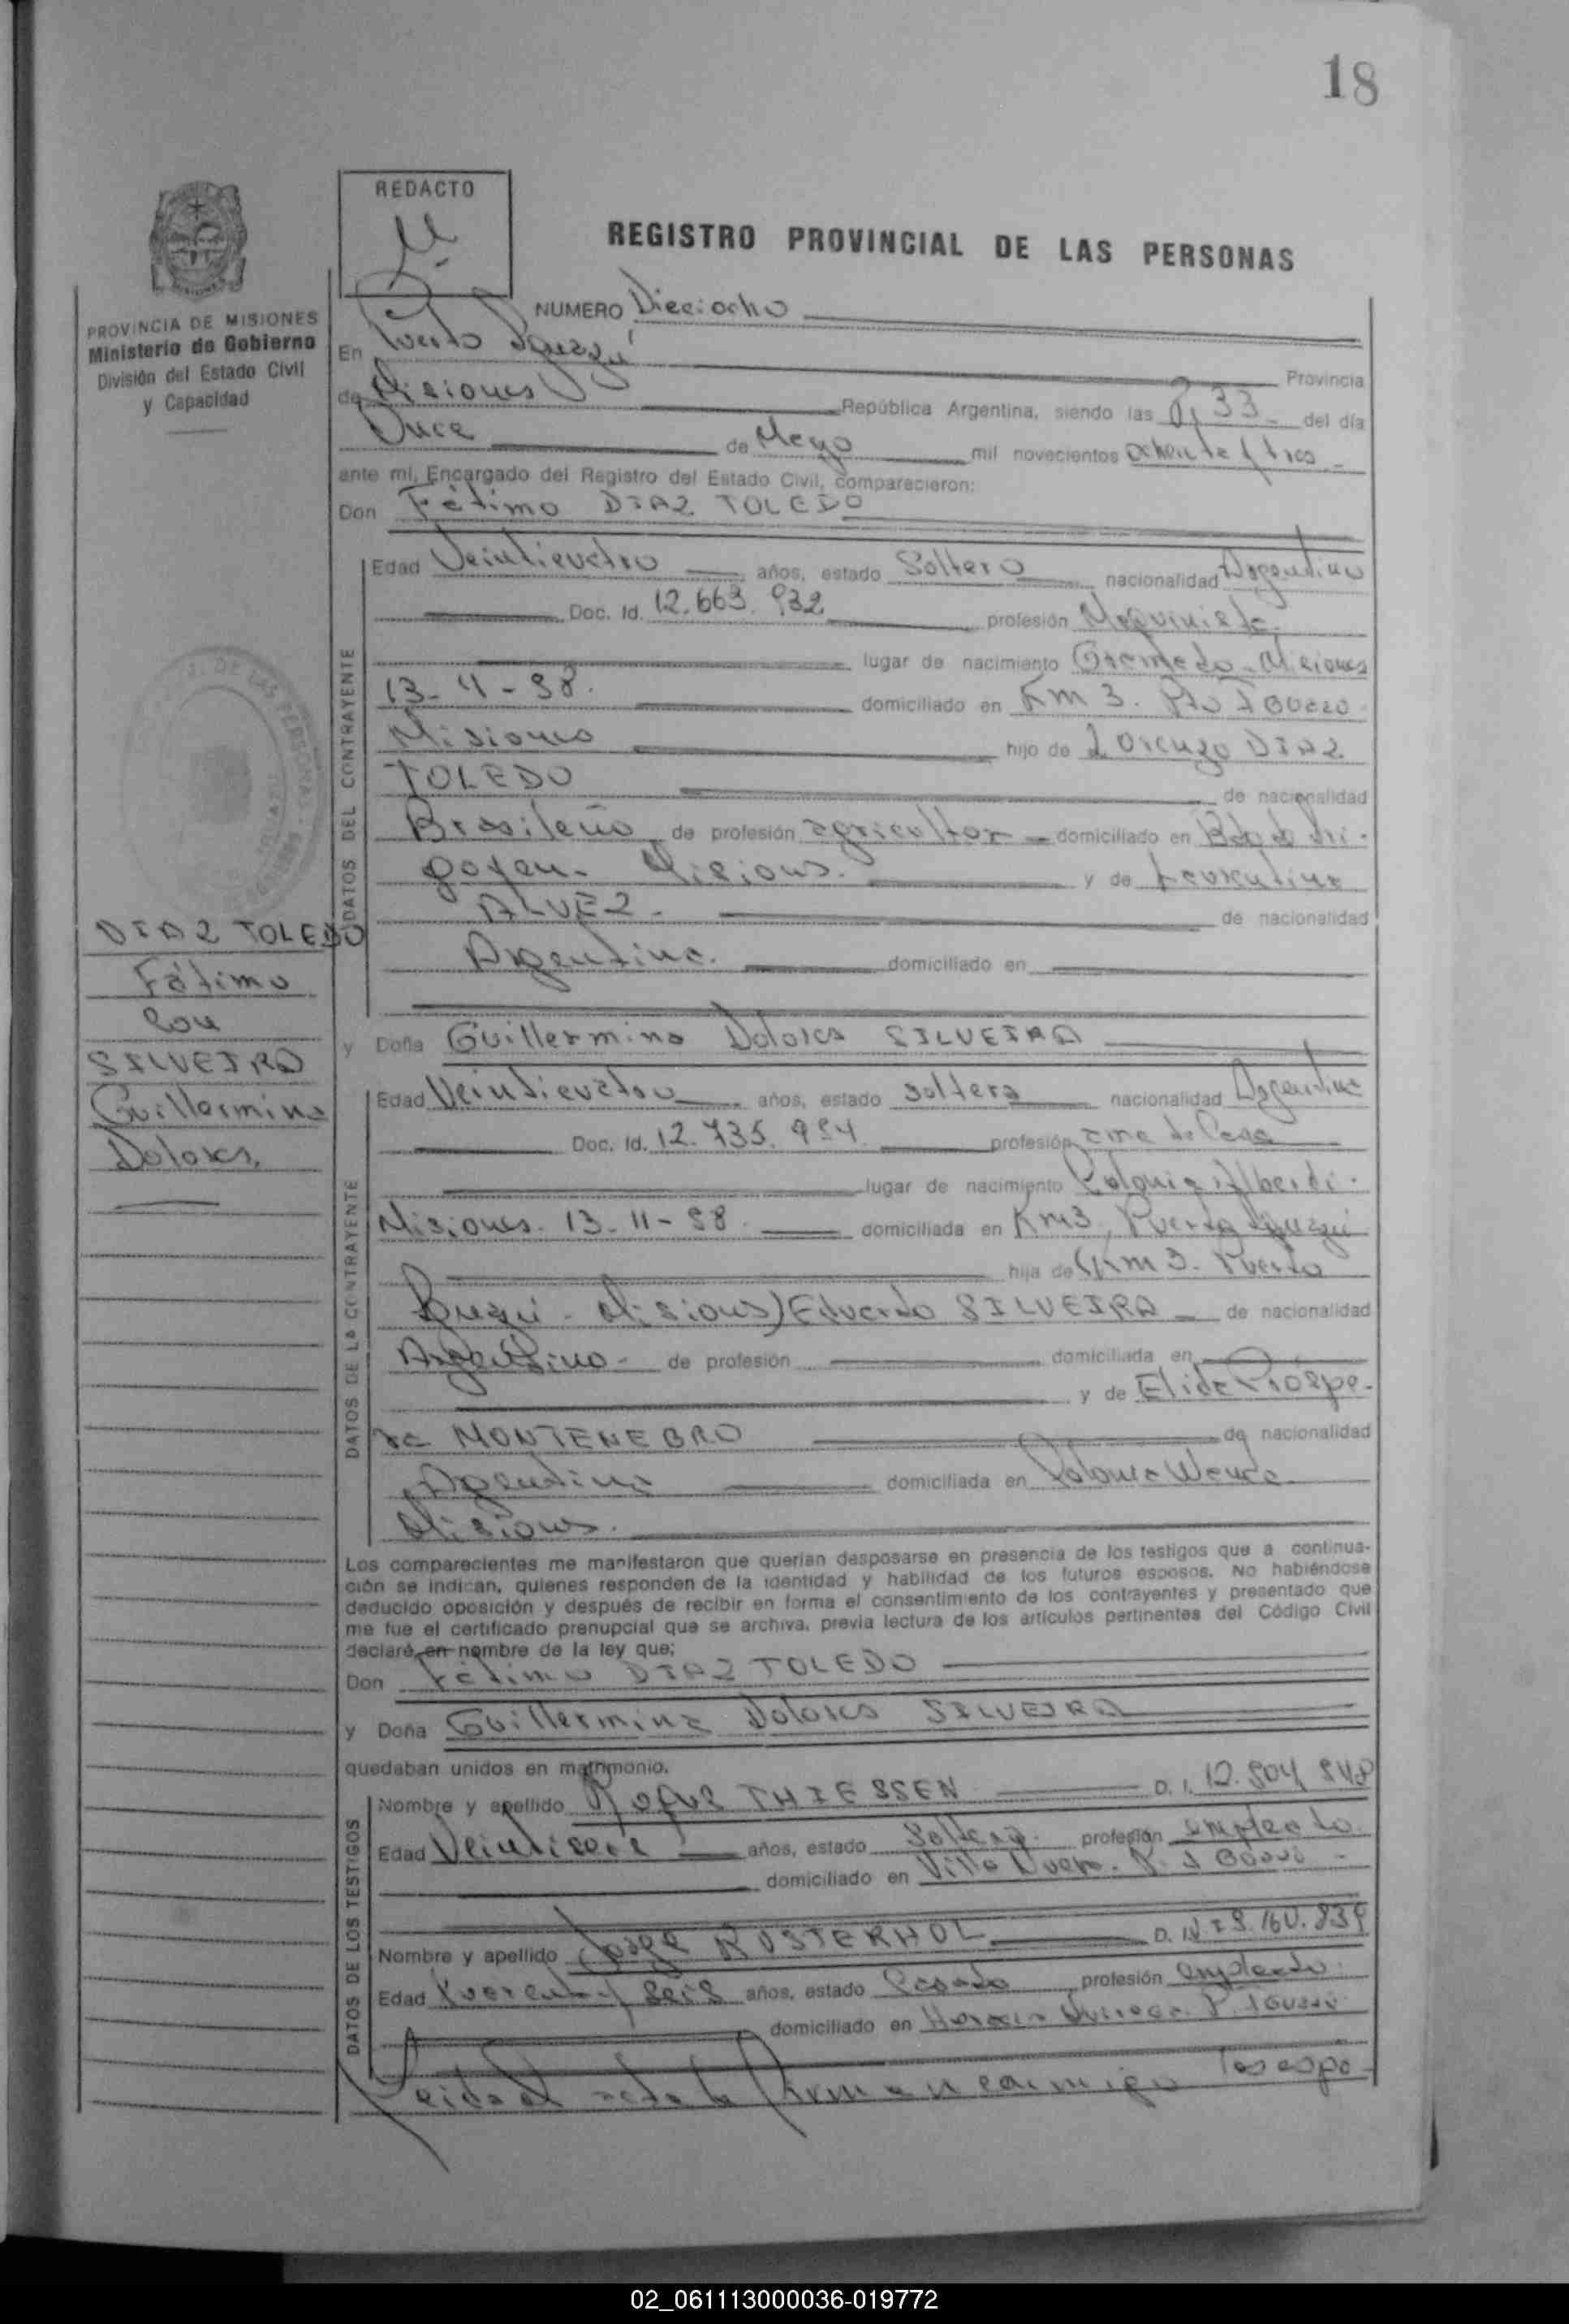 18
REDACTO
REGISTRO PROVINCIAL DE LAS PERSONAS
PROVINCIA DE MISIONES
Ministerio de Gobierno
División del Estado Civil
y Capacidad
NUMERO Dieciocho
En Puerto Iguazú Provincia
de Misiones República Argentina, siendo las 33 del día
Once de Mayo mil novecientos ochenta y tres
ante mi, Encargado del Registro del Estado Civil, comparecieron:
Don Fátimo DIAZ TOLEDO
DATOS DEL CONTRAYENTE
Edad Veinticuatro años, estado Soltero nacionalidad Argentino
Doc. Id. 12.663.932 profesión Maquinista
lugar de nacimiento Misiones
13-11-58. domiciliado en Km 3. Pto Iguazú
Misiones hijo de Lorenzo DIAZ
TOLEDO de nacionalidad
Brasileño de profesión agricultor domiciliado en Bdo de Iri-
goyen. Misiones. y de
ALVEZ. de nacionalidad
Argentina. domiciliado en
DIAZ TOLEDO
Fátimo
con
SILVEIRA
Guillermina
Dolores.
y Doña Guillermina Dolores SILVEIRA
DATOS DE LA CONTRAYENTE
Edad Veinticuatro años, estado soltera nacionalidad Argentina
Doc. Id. 12.735.954. profesión ama de Casa
lugar de nacimiento Colonia Alberdi.
Misiones. 13-11-58. domiciliada en Km3, Puerto Iguazú
hija de (Km 3. Puerto
Iguazú - Misiones) Eduardo SILVEIRA de nacionalidad
Argentino- de profesión domiciliada en
y de Elida Próspe-
ra MONTENEGRO de nacionalidad
Argentina domiciliada en Colonia Wanda
Misiones.
Los comparecientes me manifestaron que querían desposarse en presencia de los testigos que a continua-
ción se indican, quienes responden de la identidad y habilidad de los futuros esposos. No habiéndose
deducido oposición y después de recibir en forma el consentimiento de los contrayentes y presentado que
me fue el certificado prenupcial que se archiva, previa lectura de los artículos pertinentes del Código Civil
declaré en nombre de la ley que;
Don Fátimo DIAZ TOLEDO
y Doña Guillermina Dolores SILVEIRA
quedaban unidos en matrimonio.
DATOS DE LOS TESTIGOS
Nombre y apellido THIESSEN D. I. 12.504
Edad años, estado profesión empleado.
domiciliado en Villa Nueva. P. Iguazú
Nombre y apellido Jorge RUSTERHOL D.
Edad Cuarenta y seis años, estado Casado profesión empleado.
domiciliado en Horacio Quiroga. P. Iguazú
Leída el acta la firman conmigo los espo-
02_061113000036-019772